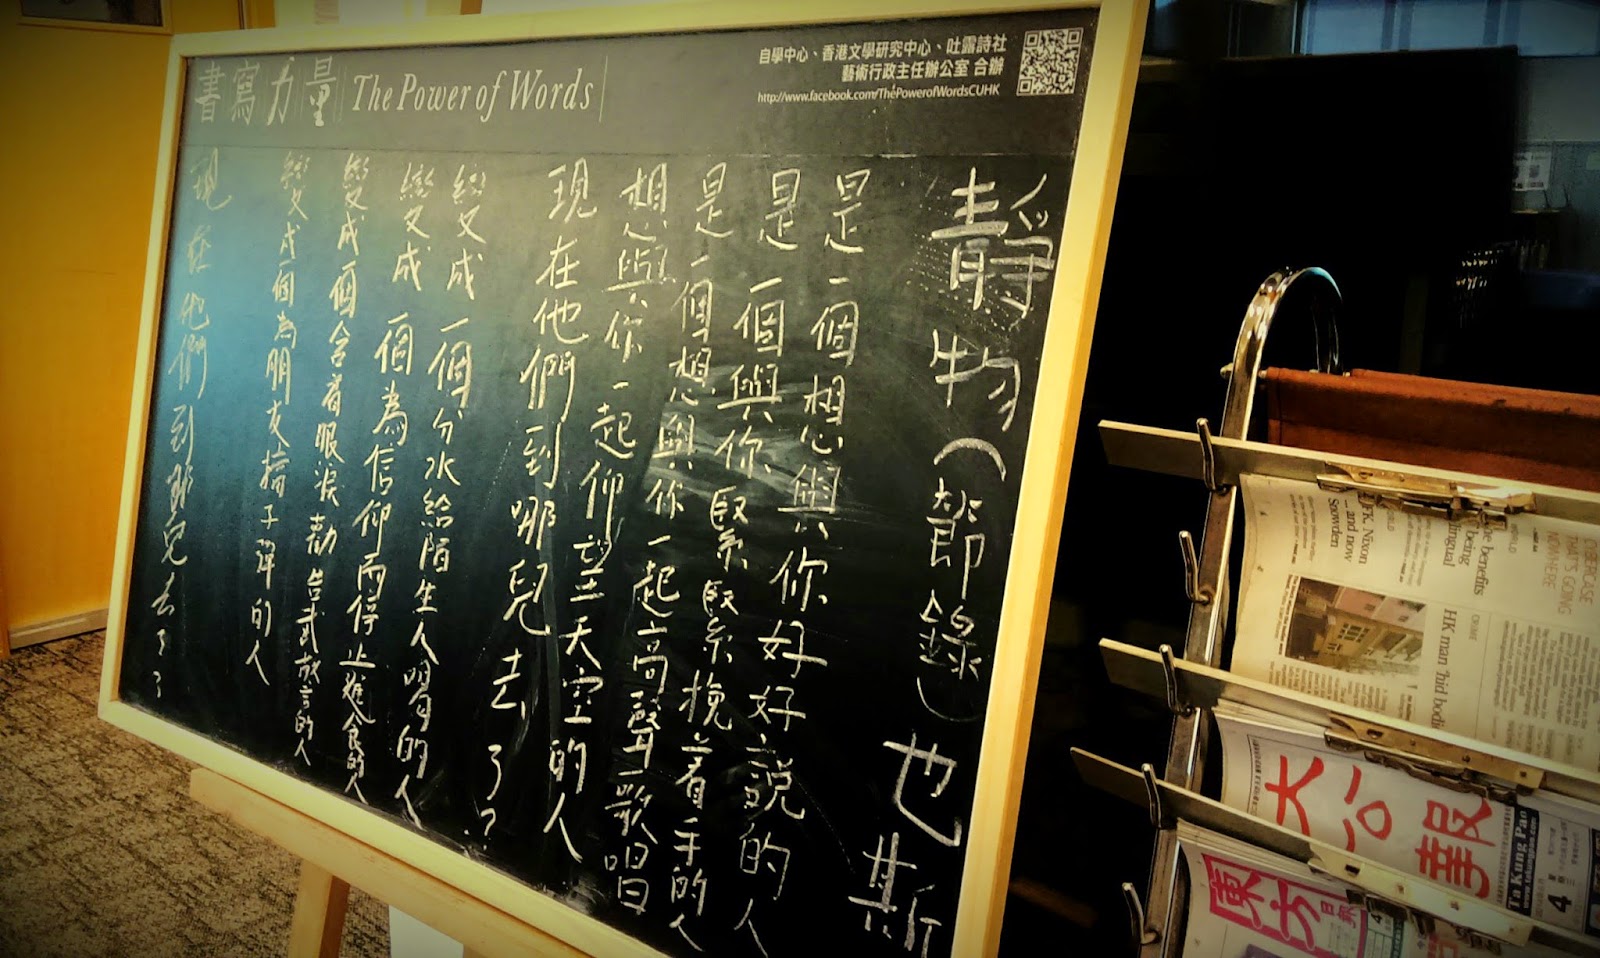 書寫力量 The Power of Words
自學中心、香港文學研究中心、吐露詩社
藝術行政主任辦公室 合辦
http://www.facebook.com/ThePowerofWordsCUHK
靜物(節錄)也斯
是一個想與你好好說的人
是一個與你緊緊挽着手的人
是一個想與你一起高聲歌唱
想與你一起仰望天空的人
現在他們到哪兒去了?
變成一個分水給陌生人喝的人
變成一個為信仰而停止進食的人
變成一個含着眼淚勸放言的人
變成個為朋友擋子彈的人
現在他們到那兒去了
JFK, Nixon
...and now
Snowden
benefits
being
HK man 'hid bodi
THAT'S GOING
NOWHERE
大公報
Ta Kung Pao
東方日報